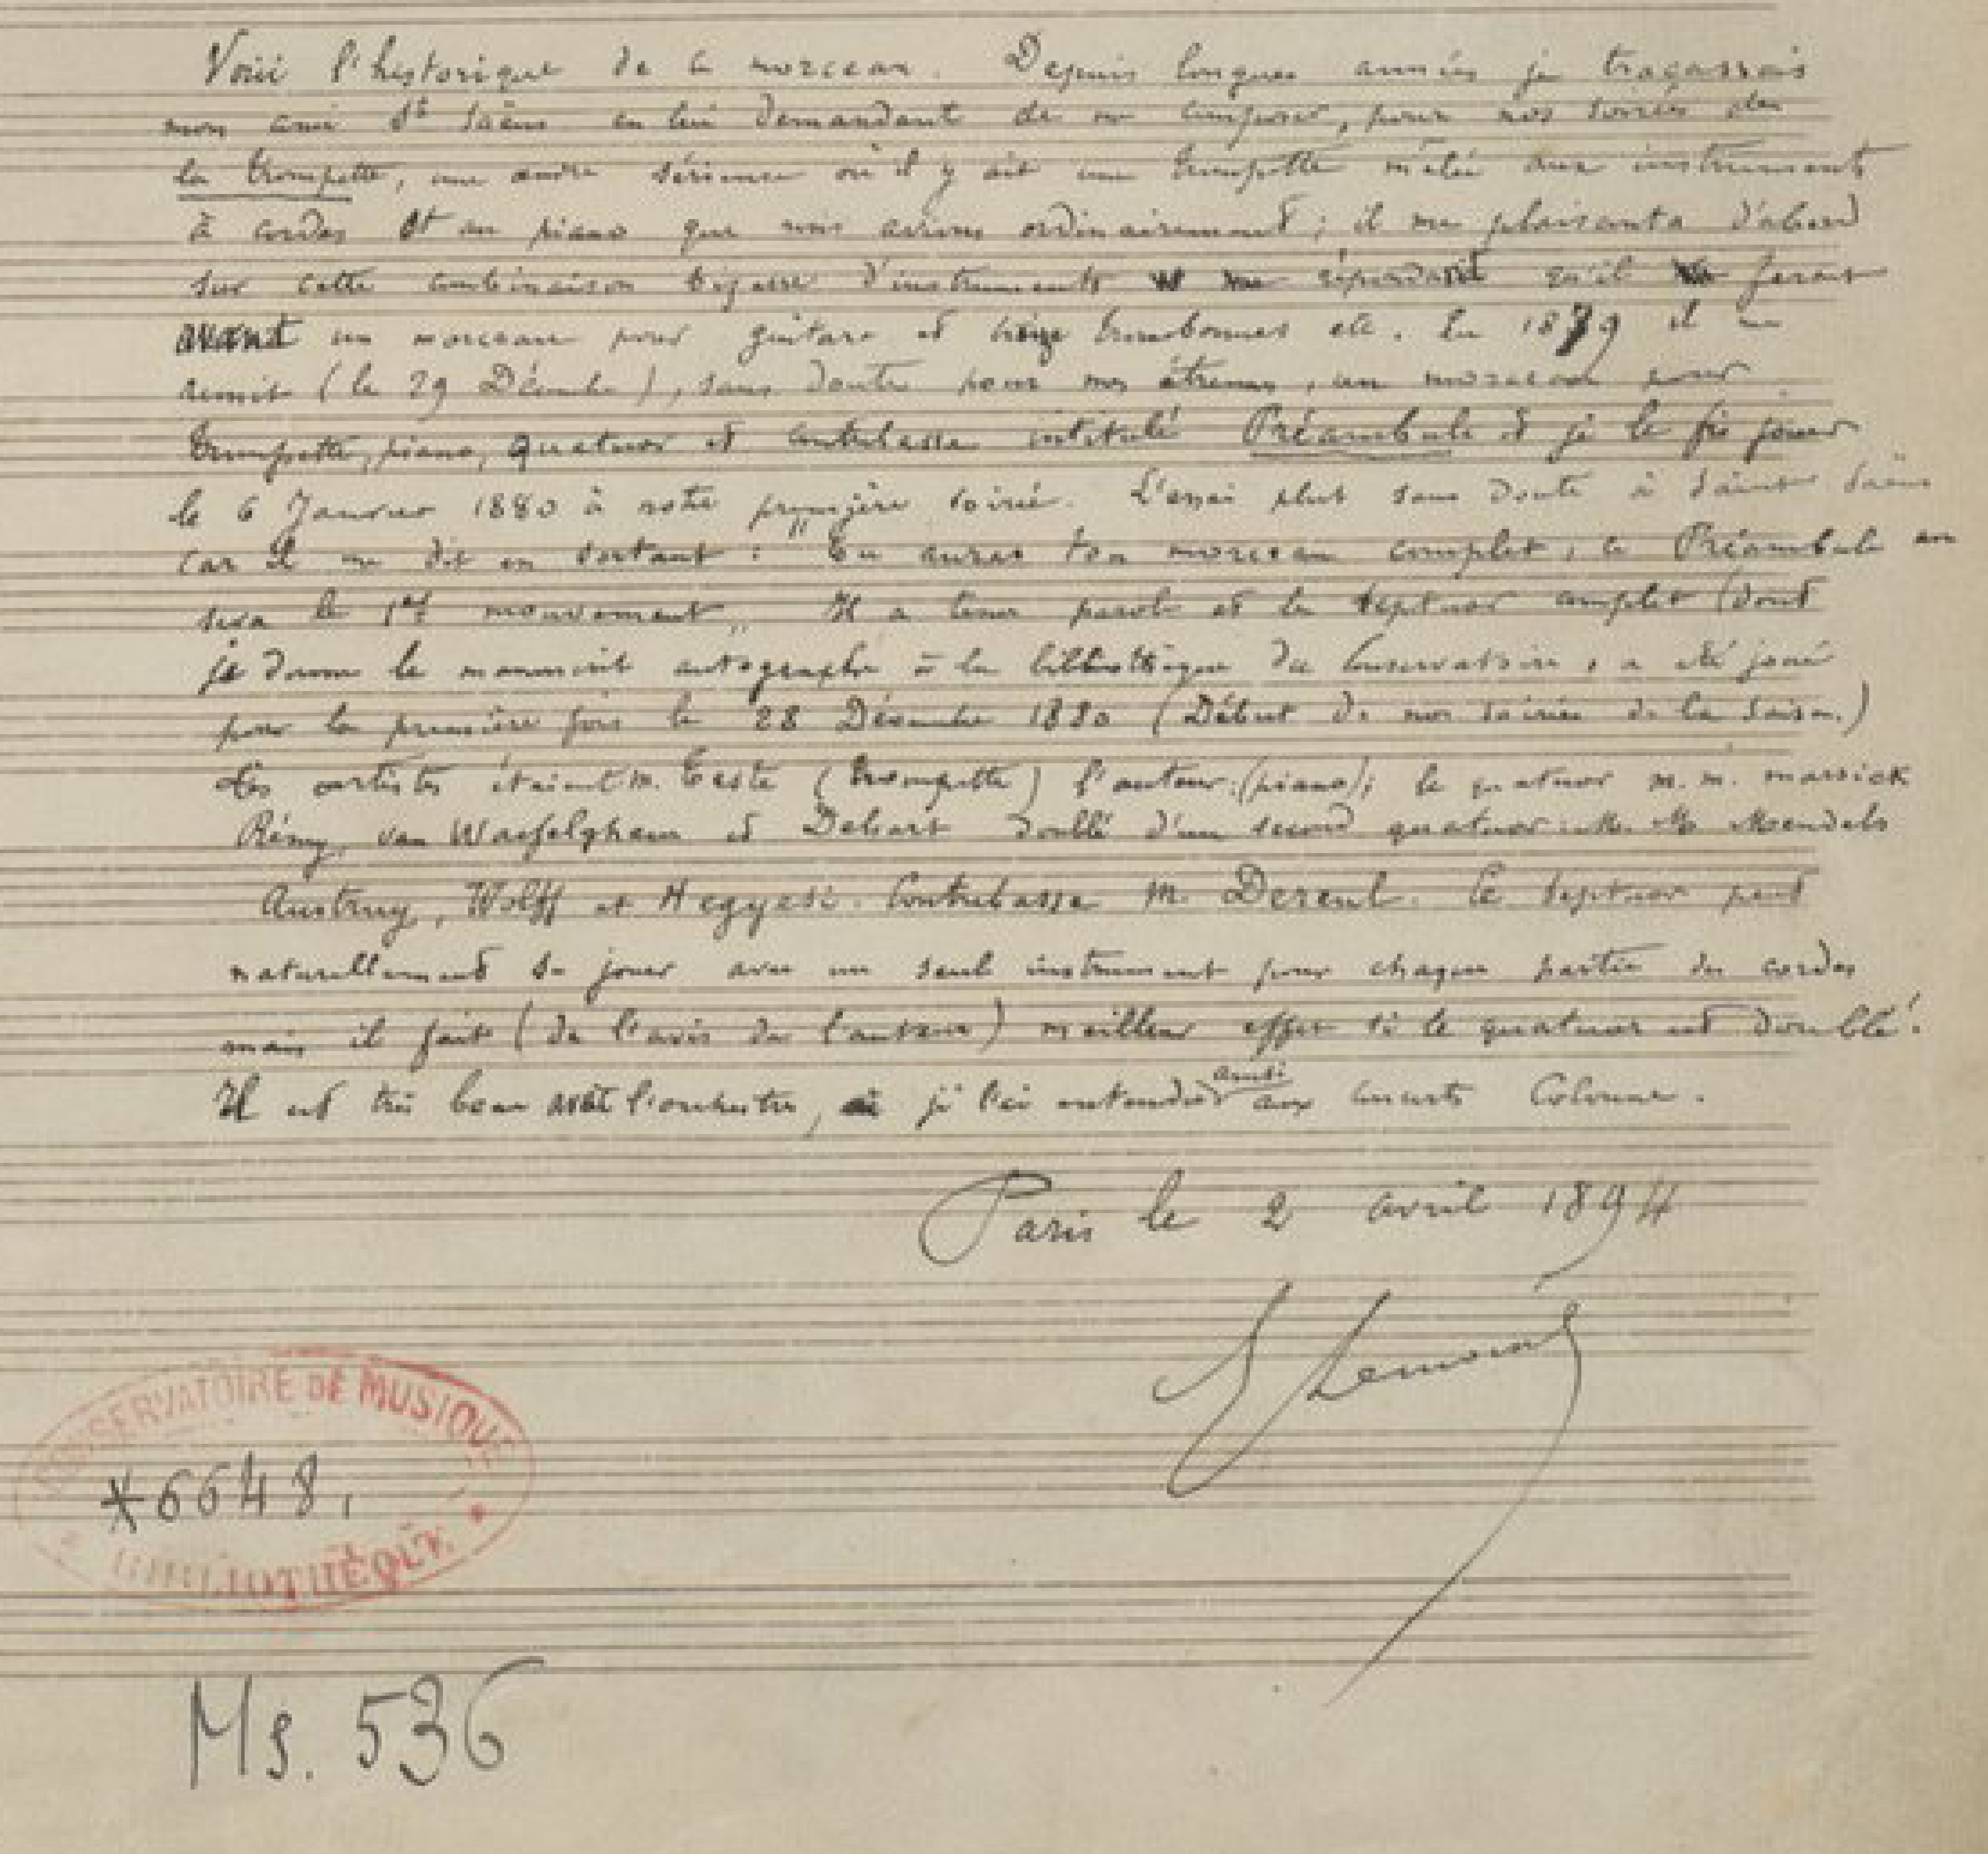 Voici l'historique de ce morceau. Depuis longues années je tracassais
mon ami St Saëns en lui demandant de me composer, pour nos soirées de
la trompette, une œuvre sérieuse où il y ait une trompette mêlée aux instruments
à cordes et au piano que nous avions ordinairement; il me plaisanta d'abord
sur cette combinaison bizarre d'instruments répondant qu'il ferait
avant un morceau pour guitare et treize trombonnes etc. En 1879 il me
remit (le 29 Décembre), sans doute pour mes étrennes, un morceau pour
trompette, piano, quatuor et contrebasse intitulé Préambule et je le fis jouer
le 6 Janvier 1880 à notre première soirée. L'essai plut sans doute à Saint Saëns
car il me dit en sortant : "Tu auras ton morceau complet, ce Préambule en
sera le 1er mouvement„ Il a tenu parole et le septuor complet (dont
je donne le manuscrit autographe à la bibliothèque du Conservatoire, a été joué
pour la première fois le 28 Décembre 1880 (Début de nos soirées de la saison.)
Les artistes étaient M. Teste (trompette) l'auteur (piano); le quatuor m. m. marsick
Rémy, van Waefelghem et Delsart doublé d'un second quatuor M. M. Mendels
Austruy, Wolff et Hegyesi. Contrebasse M. Dereul. Ce septuor peut
naturellement se jouer avec un seul instrument pour chaque partie des cordes
mais il fait (de l'avis de l'auteur) meilleur effet si le quatuor est doublé.
Il est très beau avec l'orchestre, je l'ai entendu ainsi aux concerts Colonne.
Paris le 2 avril 1894
E Lemoine
CONSERVATOIRE DE MUSIQUE
*6648,
BIBLIOTHÈQUE
Ms. 536